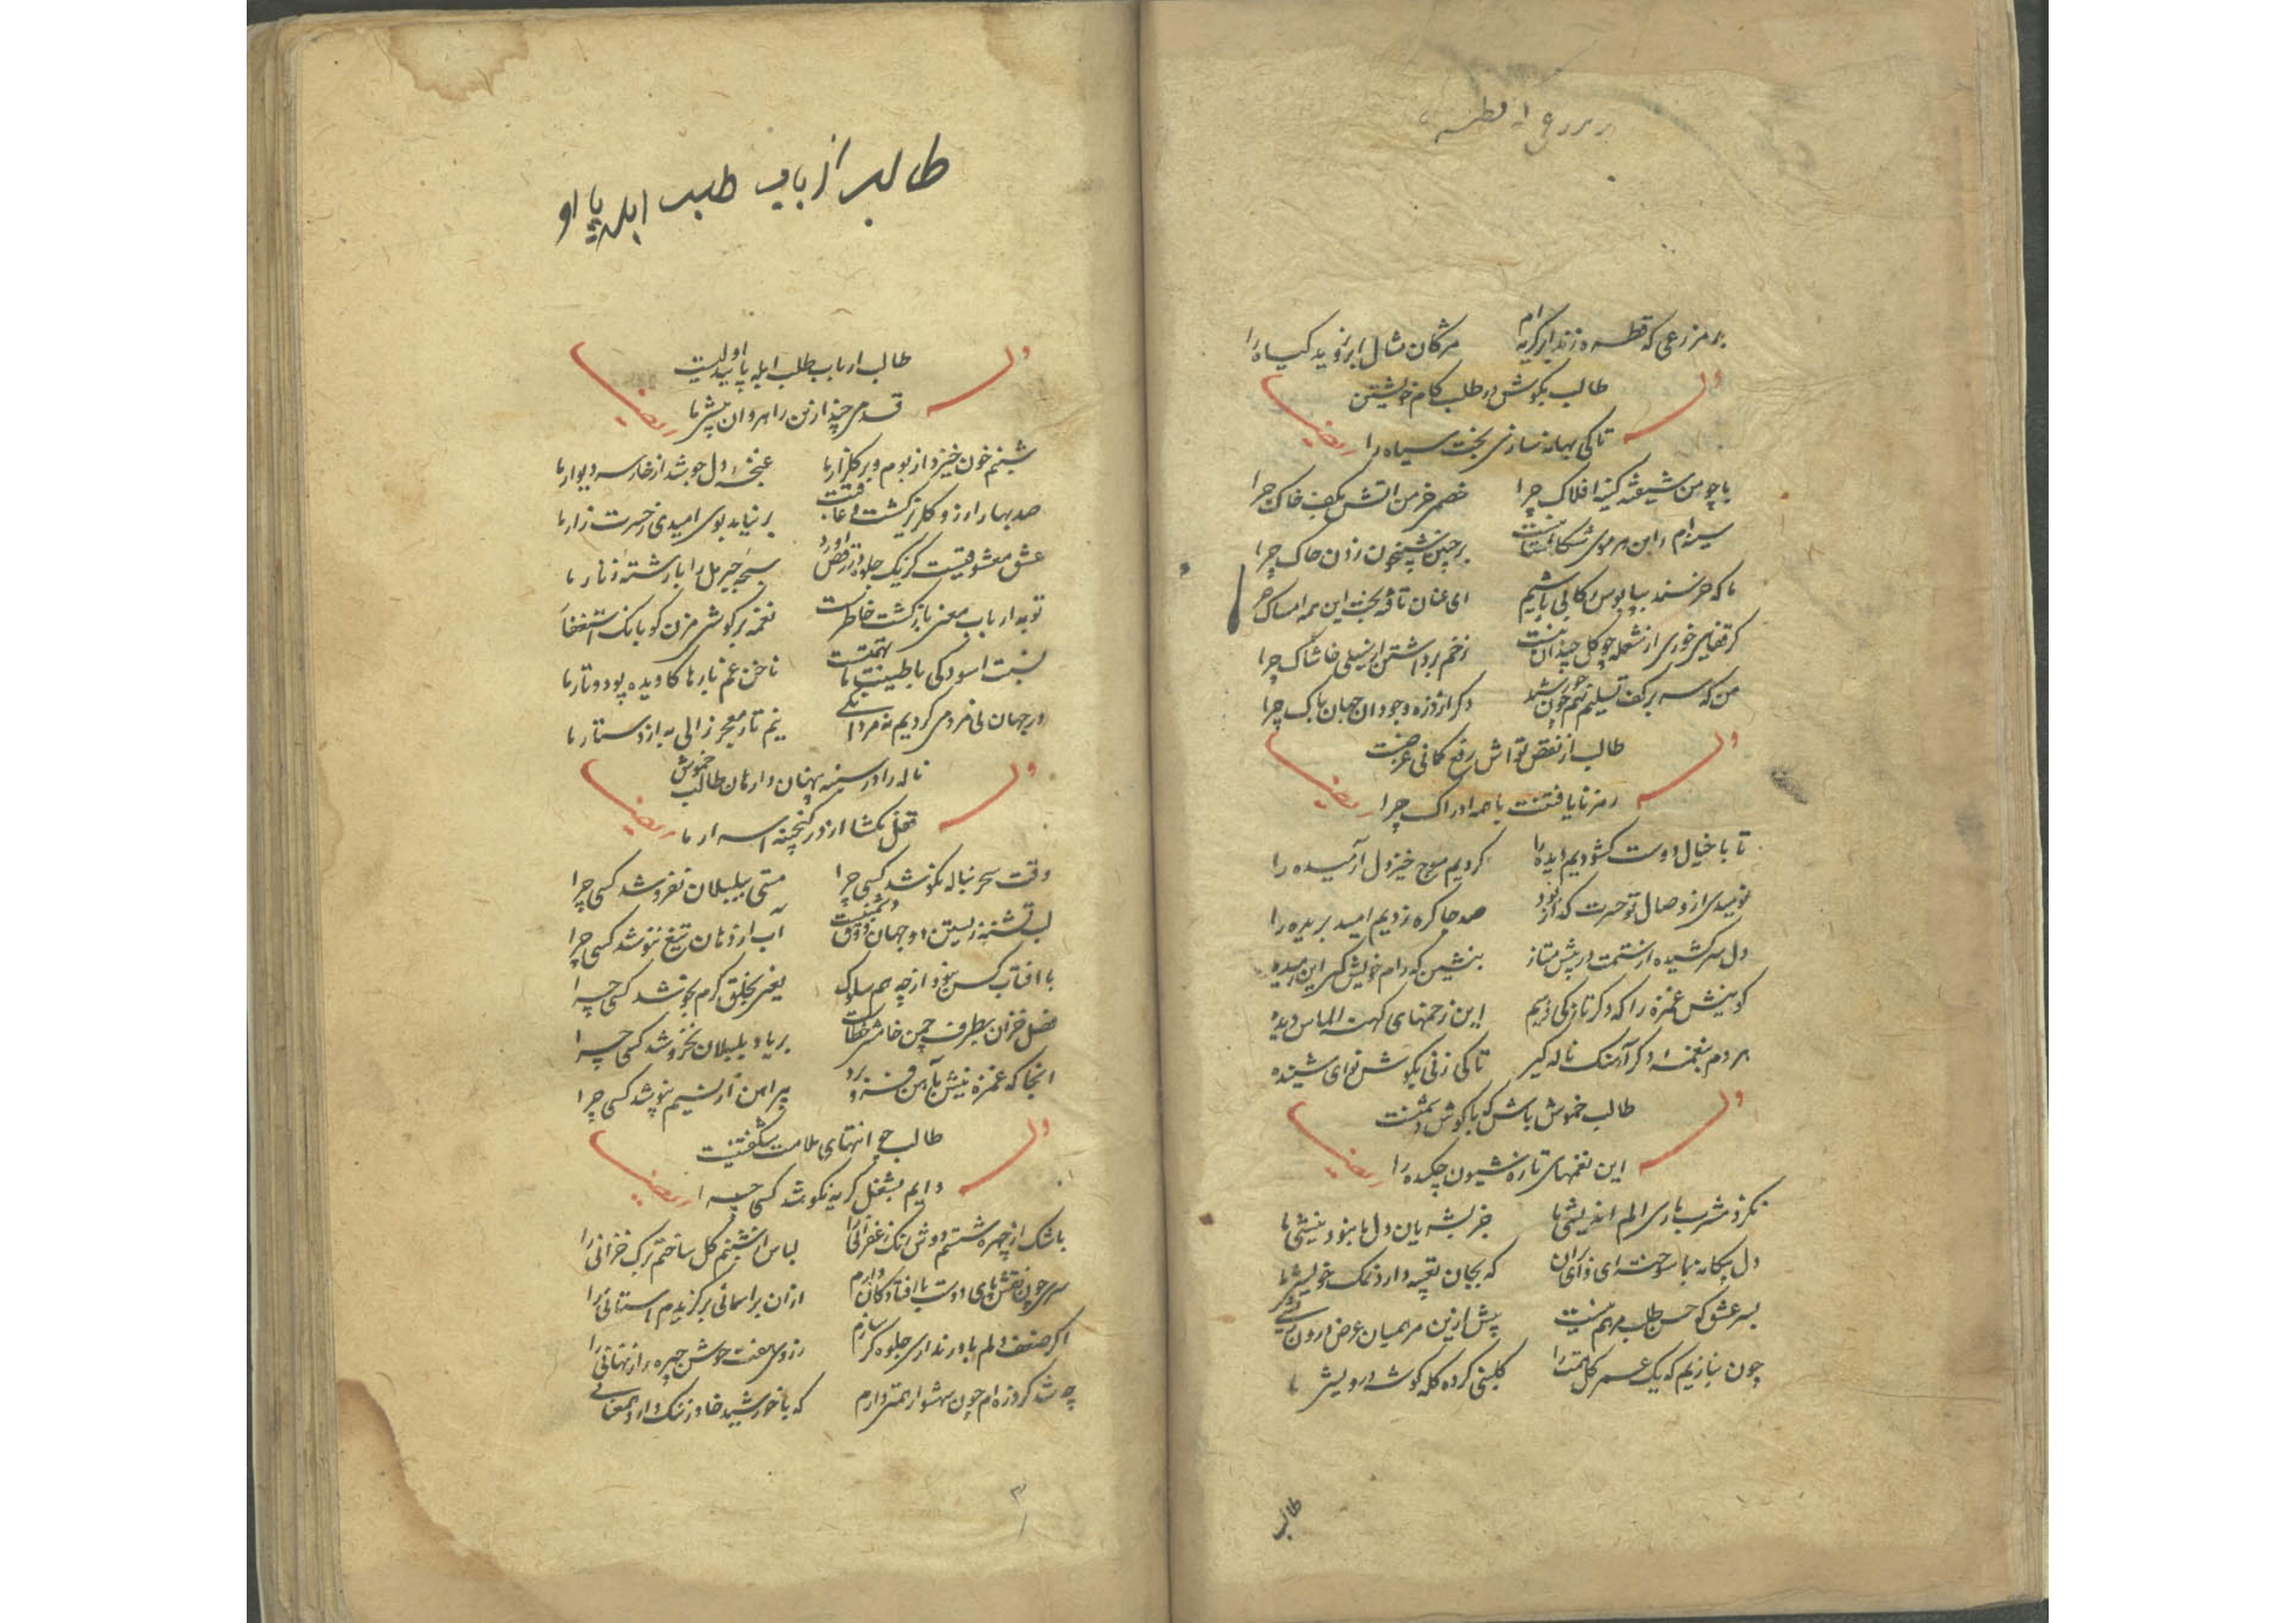 بر مزرعی که قطره زند ابر گریه‌ام مژگان مثال ابر بروید گیاه را
وله
طالب بکوش در طلب کام خویشتن
تا کی بهانه سازی بخت سیاه را
ایضا
با چو من شیفته کینه افلاک چرا خصم خرمن اتش بکف خاک چرا
سینه‌ام را بن هر موی
بر چنین شبخون زدن چاک چرا
ما که خرسند ببابوس رکابی باشیم ای عنان تافته بخت این همه امساک چرا
گر قفای خوری از شعله چو گل چیدن نیست زخم برداشتن از سیلی خاشاک چرا
من که سر بر کف تسلیم نهم چون خورشید
وله
طالب از نقص
رمز نایافتنت با همه ادراک چرا
ایضا
تا با خیال دوست گشودیم دیده را کردیم موج خیز دل آرمیده را
نومیدی از وصال تو حسرت گداز بود صد جا گره زدیم امید بریده را
دل سر کشیده از ستمت در پیش متاز بنشین که رام خویش کنی این رمیده
کو نیش غمزه را که دگر تازگی دهیم این زخمهای کهنه الماس دیده
هر دم بنغمه دگر آهنگ ناله گیر تا کی زنی بگوش نوای شنیده
وله
طالب خموش باش که با گوش دشمنست
این نغمهای تازه شیون چکیده را
ایضا
نکرد مشرب یاری الم اندیشی ما جز بشریان دل ما نبود نیشی ما
دل بیگانه بما سوخته ای
که بجان تعبیه دارد نمک خویشی ما
بسر عشق که حسن طلب مرهم نیست پیش ازین مرهمیان عرض درون ریشی
چون ننازیم که یک عمر گل همت را گلبنی کرده کله گوشه درویشی ما
طالب
طالب از باب طلب ابله پا او
وله
طالب ارباب طلب ابله پا اولیست
قدمی چند ازین راهروان پیشتر ما
ایضا
شبنم خون خیزد از بوم و بر گلزار ما غنچه دل جوشد از خار سر دیوار ما
صد بهار ارزو گلریز گشت و عاقبت بر نیامد بوی امیدی ز حسرت زار ما
عشق معشوقیست کز یک جلوه در رقص اورد سبحه جبریل را با رشته زنار ما
توبه ارباب معنی بازگشت خاطرست نغمه بر گوش مزن گو بانگ استغفار
نسبت اسودگی با طینت ما تهمتست ناخن غم بارها کاویده پود و تار ما
در جهان نی مردمی کردیم نه مردانگی نیم تار معجر زالی به از دستار ما
وله
ناله را در سینه پنهان دار هان طالب خموش
قفل مگشا از در گنجینه اسرار ما
ایضا
وقت سحر بناله نکوشد کسی چرا مستی ببلبلان نفروشد کسی چرا
لب تشنه زیستن دو جهان ذوق دشمنیست آب از دهان تیغ ننوشد کسی چرا
با افتاب کس نبود از چه هم سلوک یعنی بخلق گرم نجوشد کسی چرا
فصل خزان بطرف چمن خامشی خطاست بر یاد بلبلان نخروشد کسی چرا
انجا که غمزه نیش بآهن فرو برد پیراهن از نسیم نپوشد کسی چرا
وله
طالب چو انتهای ملامت شگفتنیست
دایم بشغل گریه نکوشد کسی چرا
ایضا
باشک از چهره شستم دوش رنگ زعفرانی را لباس از شبنم گل ساختم برگ خزانی را
سری چون نقش پای دوست با افتادگان دارم ازان بر اسمانی برگزیدم استانی را
اگر ضعف دلم باور نداری جلوه گر سازم ز روی هفت جوشن چهره راز نهانی را
چه شد گر ذره‌ام چون شهسوار همتی دارم که با خورشید خاور ننگ دارد همعنانی